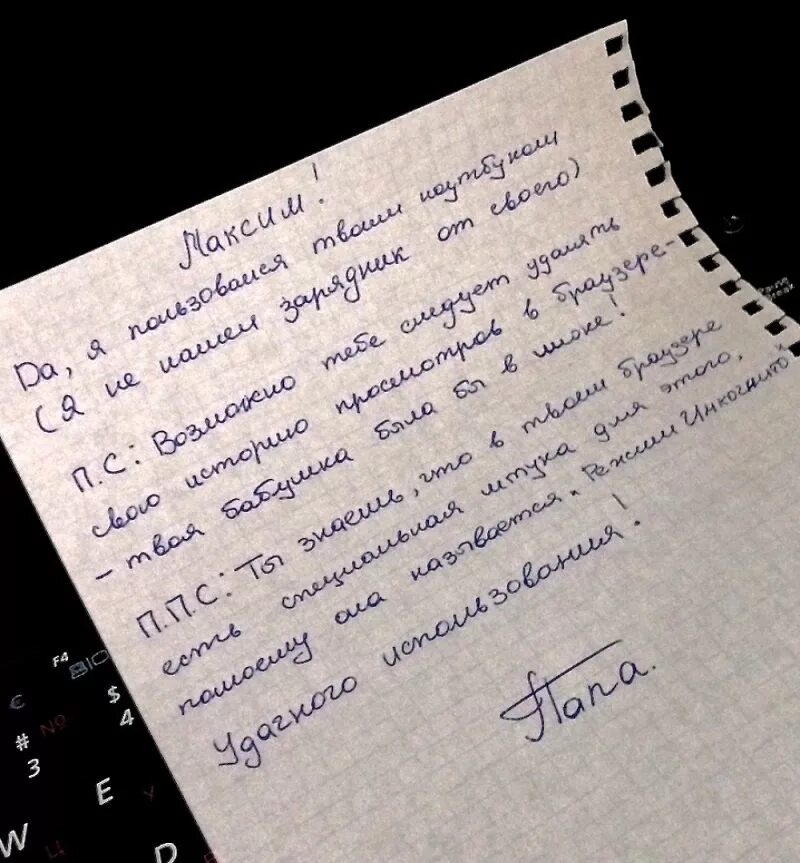 Максим!
Да, я пользовался твоим ноутбуком
(Я не нашел зарядник от своего)
П.С: Возможно тебе следует удалять
свою историю просмотров в браузере-
- твоя бабушка была бы в шоке!
П.П.С: Ты знаешь, что в твоем браузере
есть специальная штука для этого,
помоему она называется "Режим Инкогнито"
Удачного использования!
Папа.
F4
€
$
4
№
#
3
E
У
W
Ц
D
Pause